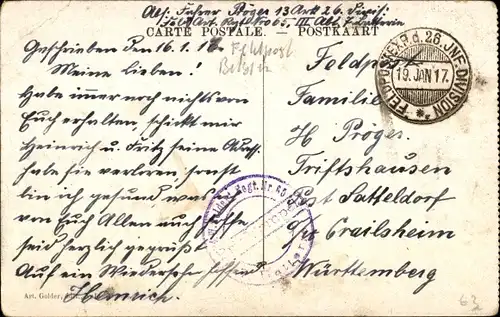 Abs. Fahrer Pröger 13 Artl 26. Divis:
Feld Art. Regt. No 65, III Abt. 7 Batterie
CARTE POSTALE. — POSTKAART
Geschrieben den 16.1.17
Feldpost
Meine Lieben!
Habe immer noch nichts von
Euch erhalten, schickt mir
Heinrich u. Fritz seine
habe sie verloren, sonst
bin ich gesund was
von Euch Allen auch hoffe
seid herzlich gegrüßt
Auf ein Wiedersehn hoffend
Heinrich
Feldpost
Familie
H. Pröger
Triftshausen
Post Satteldorf
Crailsheim
Württemberg
FELDP.EXP. d. 26. INF. DIVISION
19. JAN 17.
Regt. Nr. 65
Art. Golder,
63